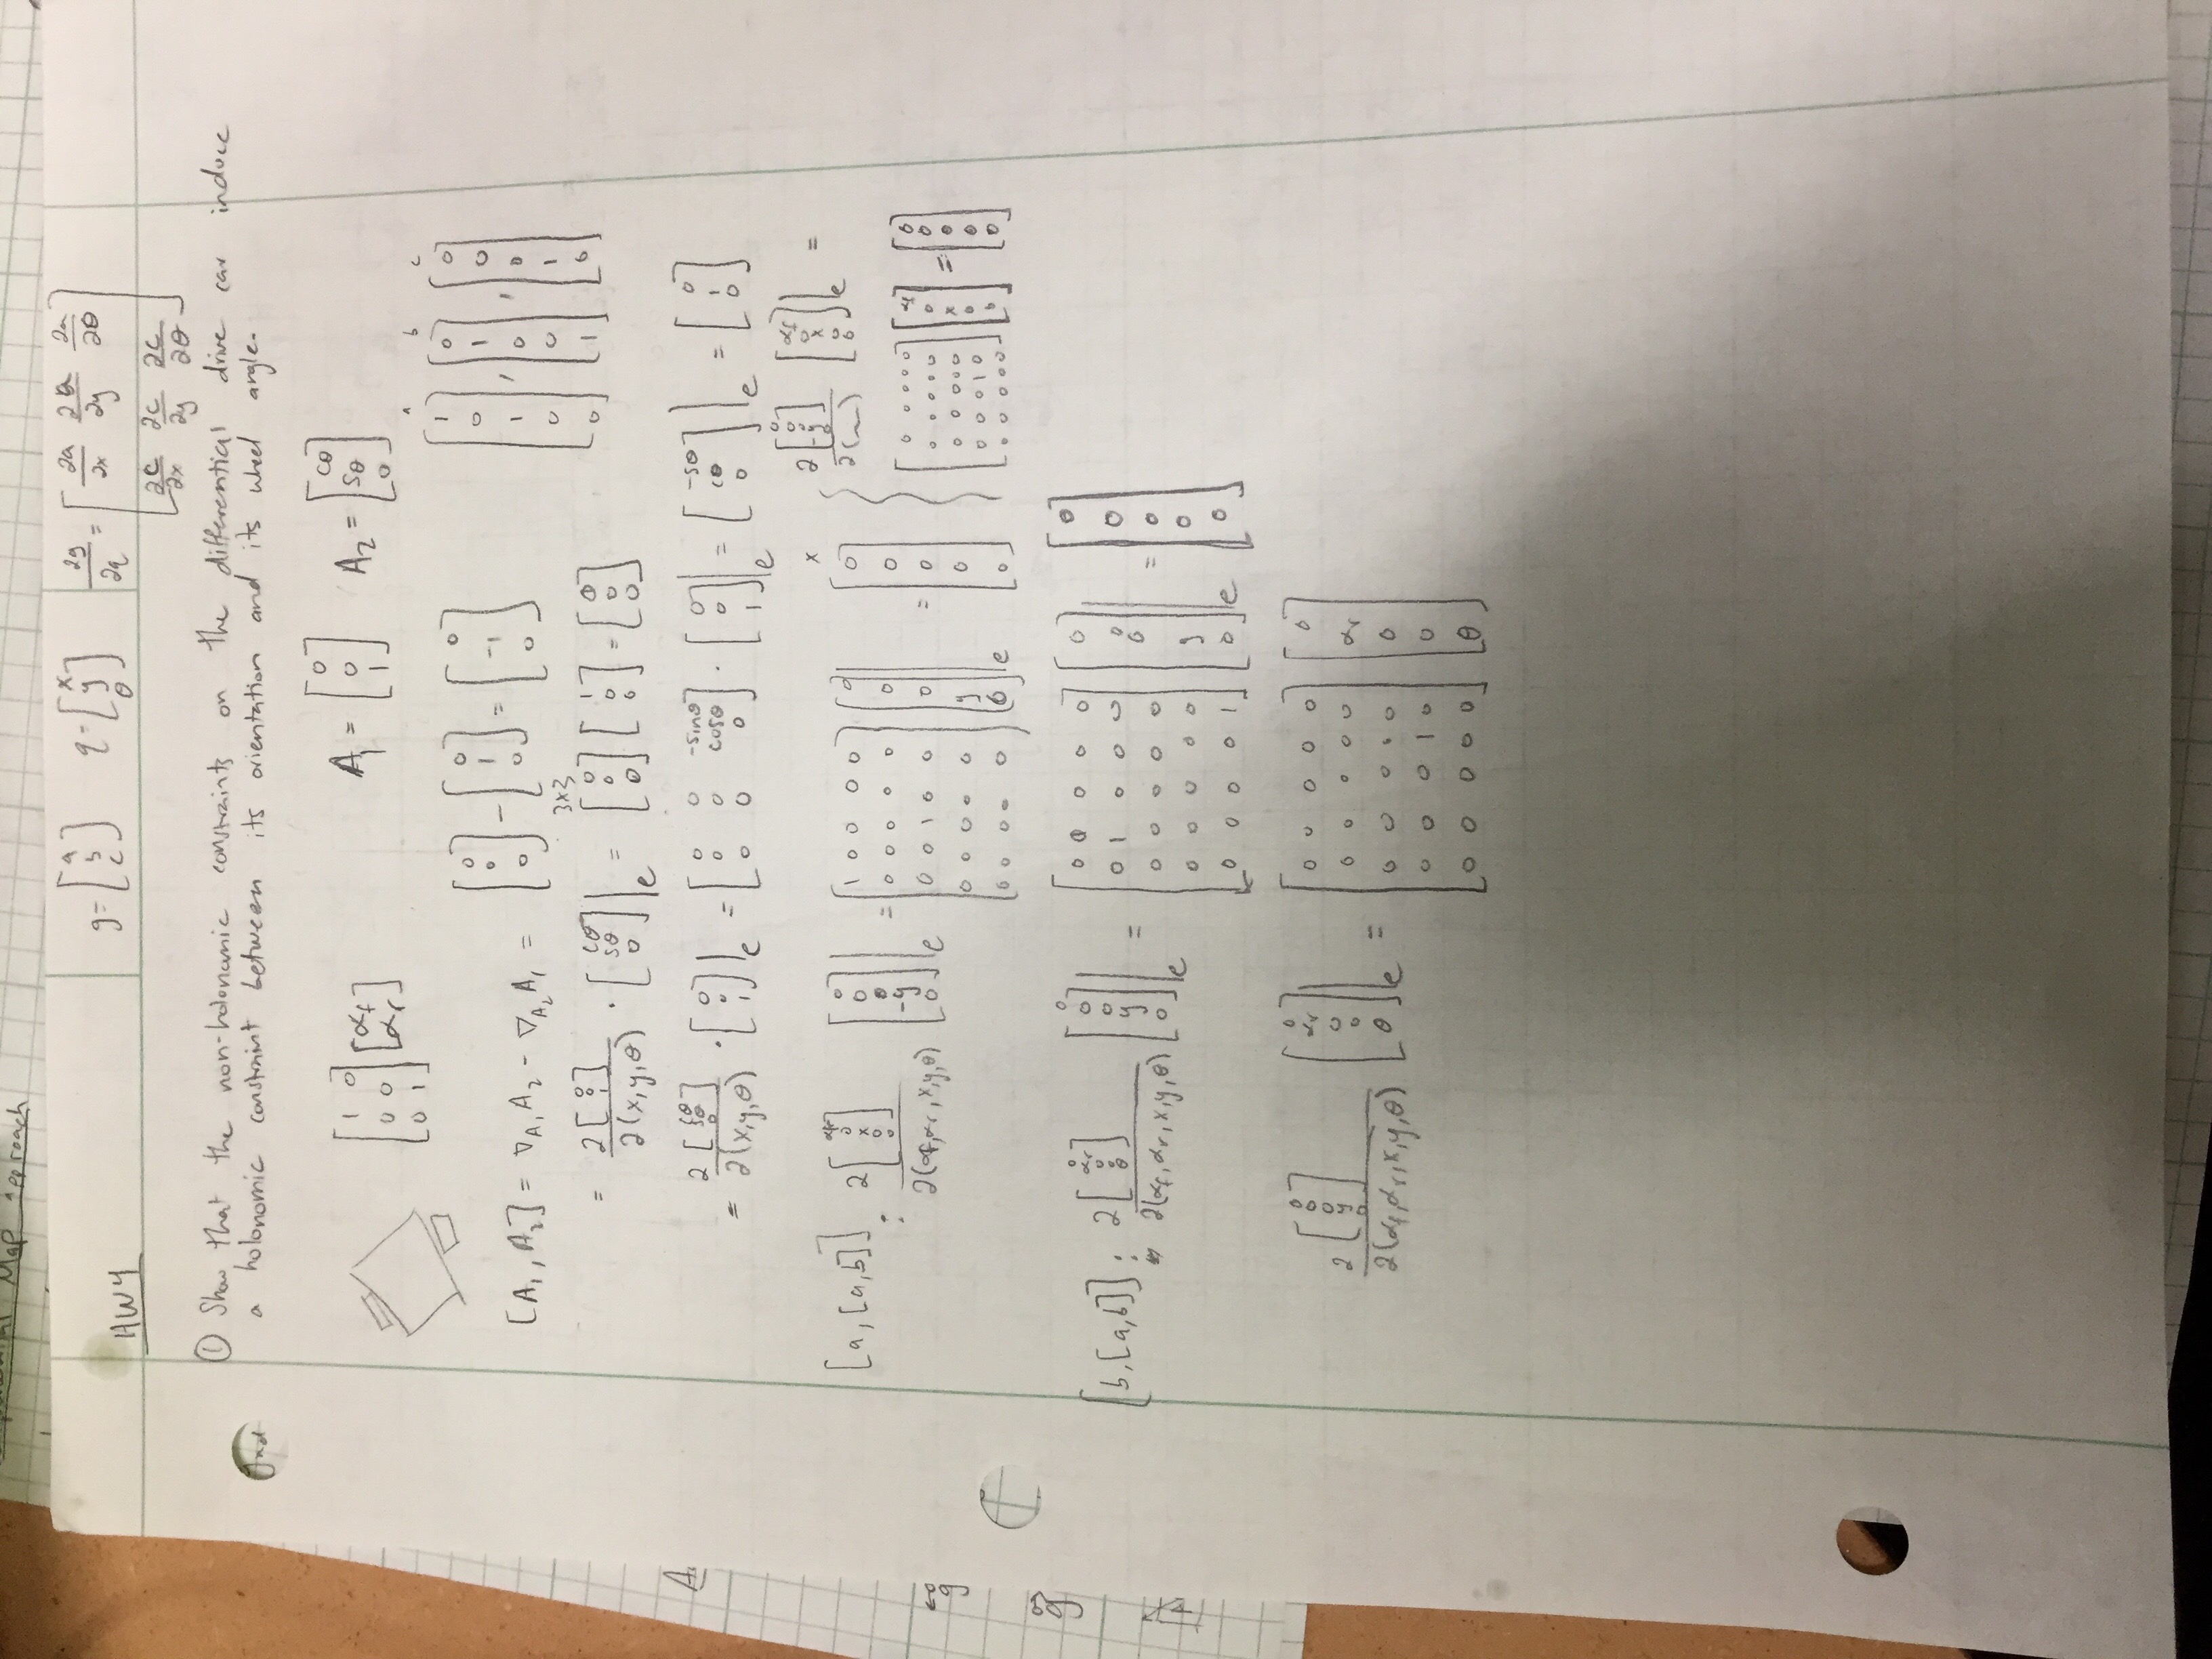 Map approach
HW4
g = [a b c]
q = [x y θ]
∂g/∂q = [∂a/∂x ∂a/∂y ∂a/∂θ
∂c/∂x ∂c/∂y ∂c/∂θ]
① Show that the non-holonomic constraints on the differential drive car induce
a holonomic constraint between its orientation and its wheel angle.
[1 0; 0 0; 0 1] [αf αr]
A₁ = [0 0 1] A₂ = [cθ sθ 0]
a b c
[1 0 1 0 0], [0 1 0 0 1], [0 0 0 1 0]
[A₁, A₂] = ∇A₁ A₂ - ∇A₂ A₁ = [0 0 0] - [0 1 0] = [0 -1 0]
3x3
= ∂[0 0 1]/∂(x,y,θ) · [cθ sθ 0]|e = [0 0 0] [1 0 0] = [0 0 0]
= ∂[cθ sθ 0]/∂(x,y,θ) · [0 0 1]|e = [0 0 -sinθ; 0 0 cosθ; 0 0 0] · [0 0 1]|e = [-sθ cθ 0]|e = [0 1 0]
[a, [a,b]] : ∂[αf 0 x 0 0]/∂(αf, αr, x, y, θ) [0 0 0 -y 0]|e = [1 0 0 0 0; 0 0 0 0 0; 0 0 1 0 0; 0 0 0 0 0; 0 0 0 0 0] [0 0 0 y 0]|e = [0 0 0 0 0]
x
∂[0 0 0 -y 0]/∂(~) [αf 0 x 0 0]|e =
[0 0 0 0 0; 0 0 0 0 0; 0 0 0 0 0; 0 0 0 1 0; 0 0 0 0 0] [αf 0 x 0 0] = [0 0 0 0 0]
[b, [a,b]] : ∂[0 αr 0 0 θ]/∂(αf, αr, x, y, θ) [0 0 0 y 0]|e = [0 0 0 0 0; 0 1 0 0 0; 0 0 0 0 0; 0 0 0 0 0; 0 0 0 0 1] [0 0 0 y 0]|e = [0 0 0 0 0]
∂[0 0 0 y 0]/∂(αf, αr, x, y, θ) [0 αr 0 0 θ]|e = [0 0 0 0 0; 0 0 0 0 0; 0 0 0 0 0; 0 0 0 1 0; 0 0 0 0 0] [0 αr 0 0 θ]
A